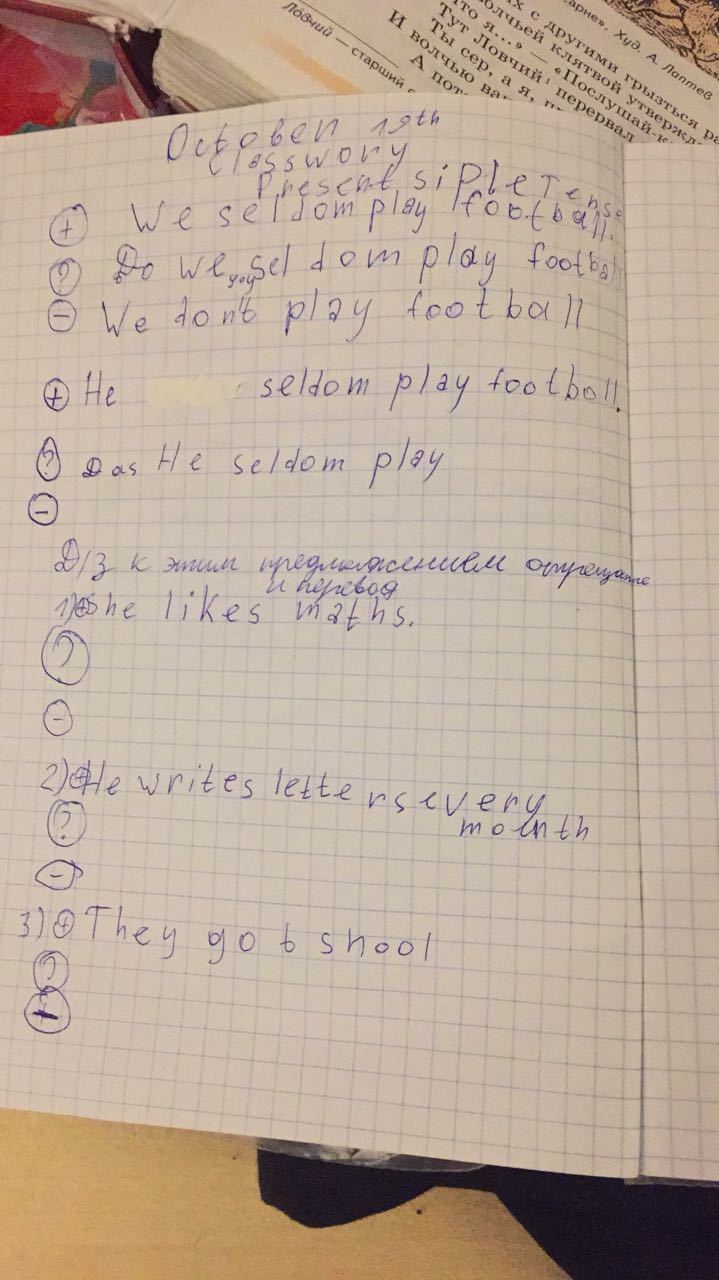 сарне». Худ. А. Лаптев
их с другими грызться ра
что я...» — «Послушай-к
волчьей клятвой утвержд
Тут Ловчий¹ перервал
Ты сер, а я, п
И волчью ва
А пот
Ло́вчий — старший с
October 19th
Classwory
Present siple Tense
+ We seldom play football.
? Do we seldom play football
you
- We don't play football
+ He seldom play football.
? Das He seldom play
-
Д/З к этим предложением
и перевод
1) + She likes maths.
?
-
2) + He writes letters every
month
?
-
3) + They go t shool
?
+